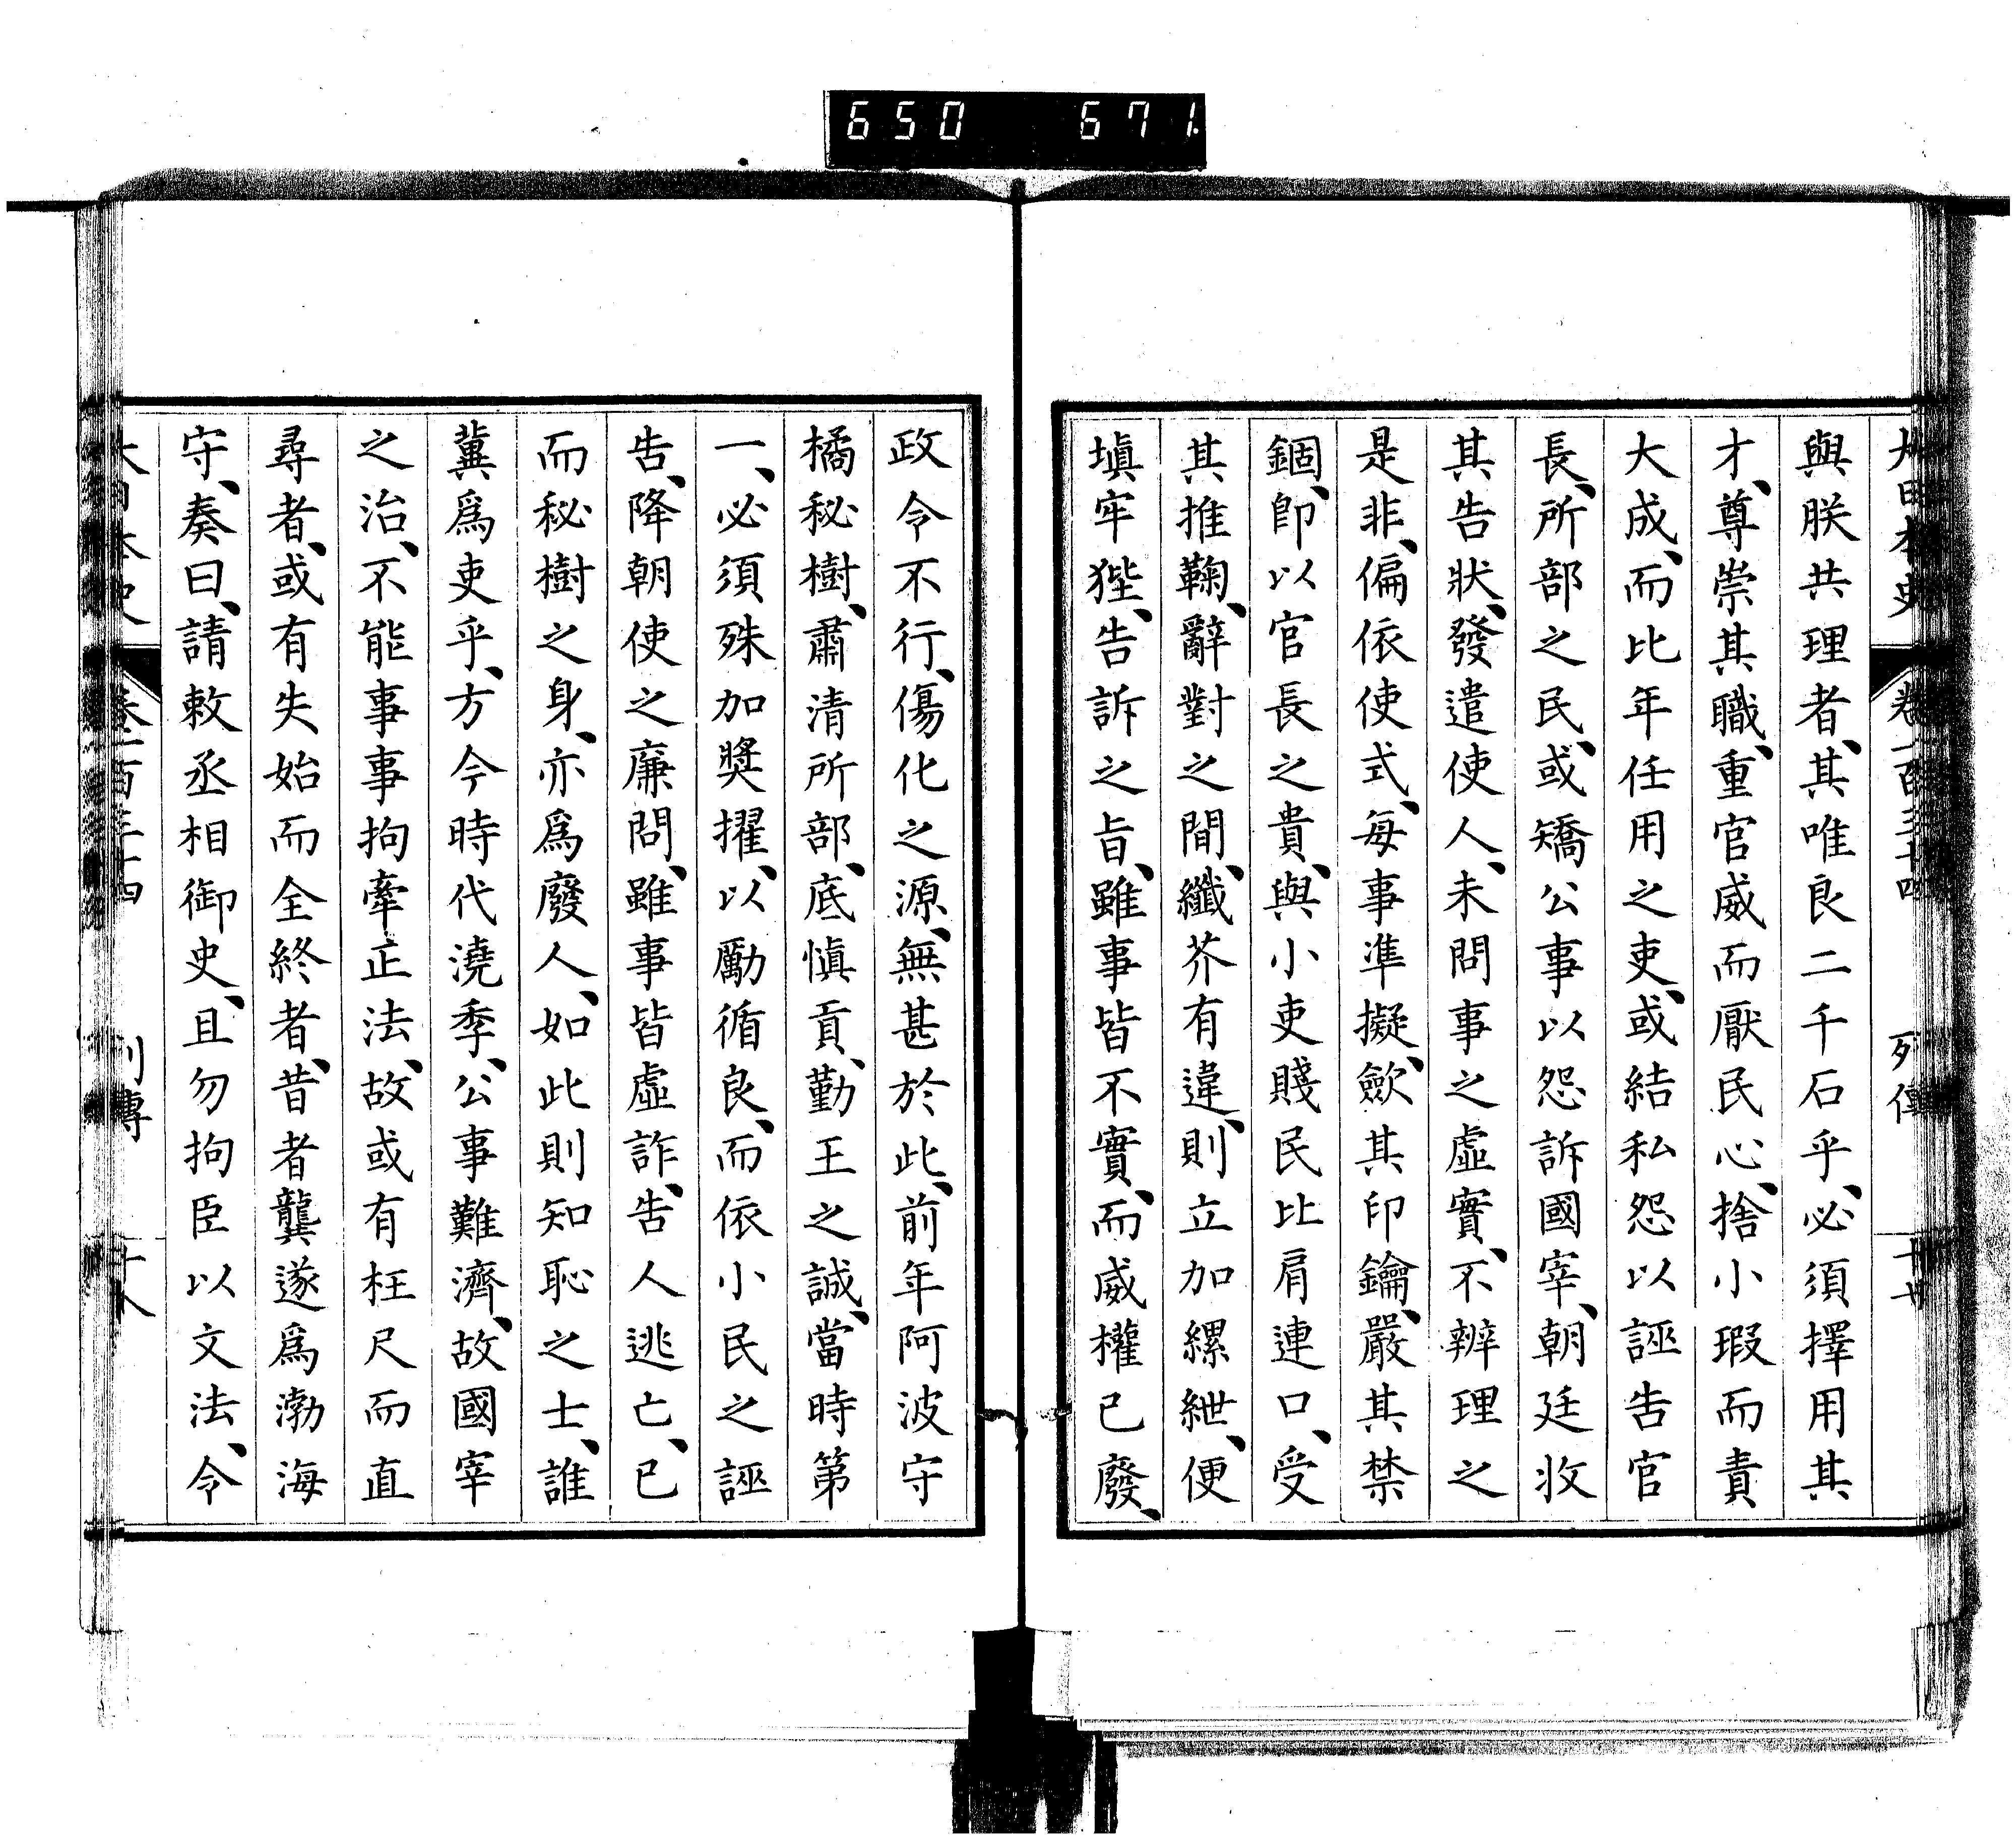 650 671.
大日本史 卷一百三十四 列傳
與朕共理者、其唯良二千石乎、必須擇用其
才、尊崇其職、重官威而厭民心、捨小瑕而責
大成、而比年任用之吏、或結私怨以誣告官
長、所部之民、或矯公事以怨訴國宰、朝廷收
其告狀、發遣使人、未問事之虛實、不辨理之
是非、偏依使式、每事準擬、歛其印鑰、嚴其禁
錮、卽以官長之貴、與小吏賤民比肩連口、受
其推鞠、辭對之間、纖芥有違、則立加縲紲、便
塡牢狴、告訴之旨、雖事皆不實、而威權已廢、
政令不行、傷化之源、無甚於此、前年阿波守
橘秘樹、肅清所部、底愼貢、勤王之誠、當時第
一、必須殊加奬擢、以勵循良、而依小民之誣
告、降朝使之廉問、雖事皆虛詐、告人逃亡、已
而秘樹之身、亦爲廢人、如此則知恥之士、誰
冀爲吏乎、方今時代澆季、公事難濟、故國宰
之治、不能事事拘牽正法、故或有枉尺而直
尋者、或有失始而全終者、昔者龔遂爲渤海
守、奏曰、請敕丞相御史、且勿拘臣以文法、令
大日本史 卷一百三十四 列傳